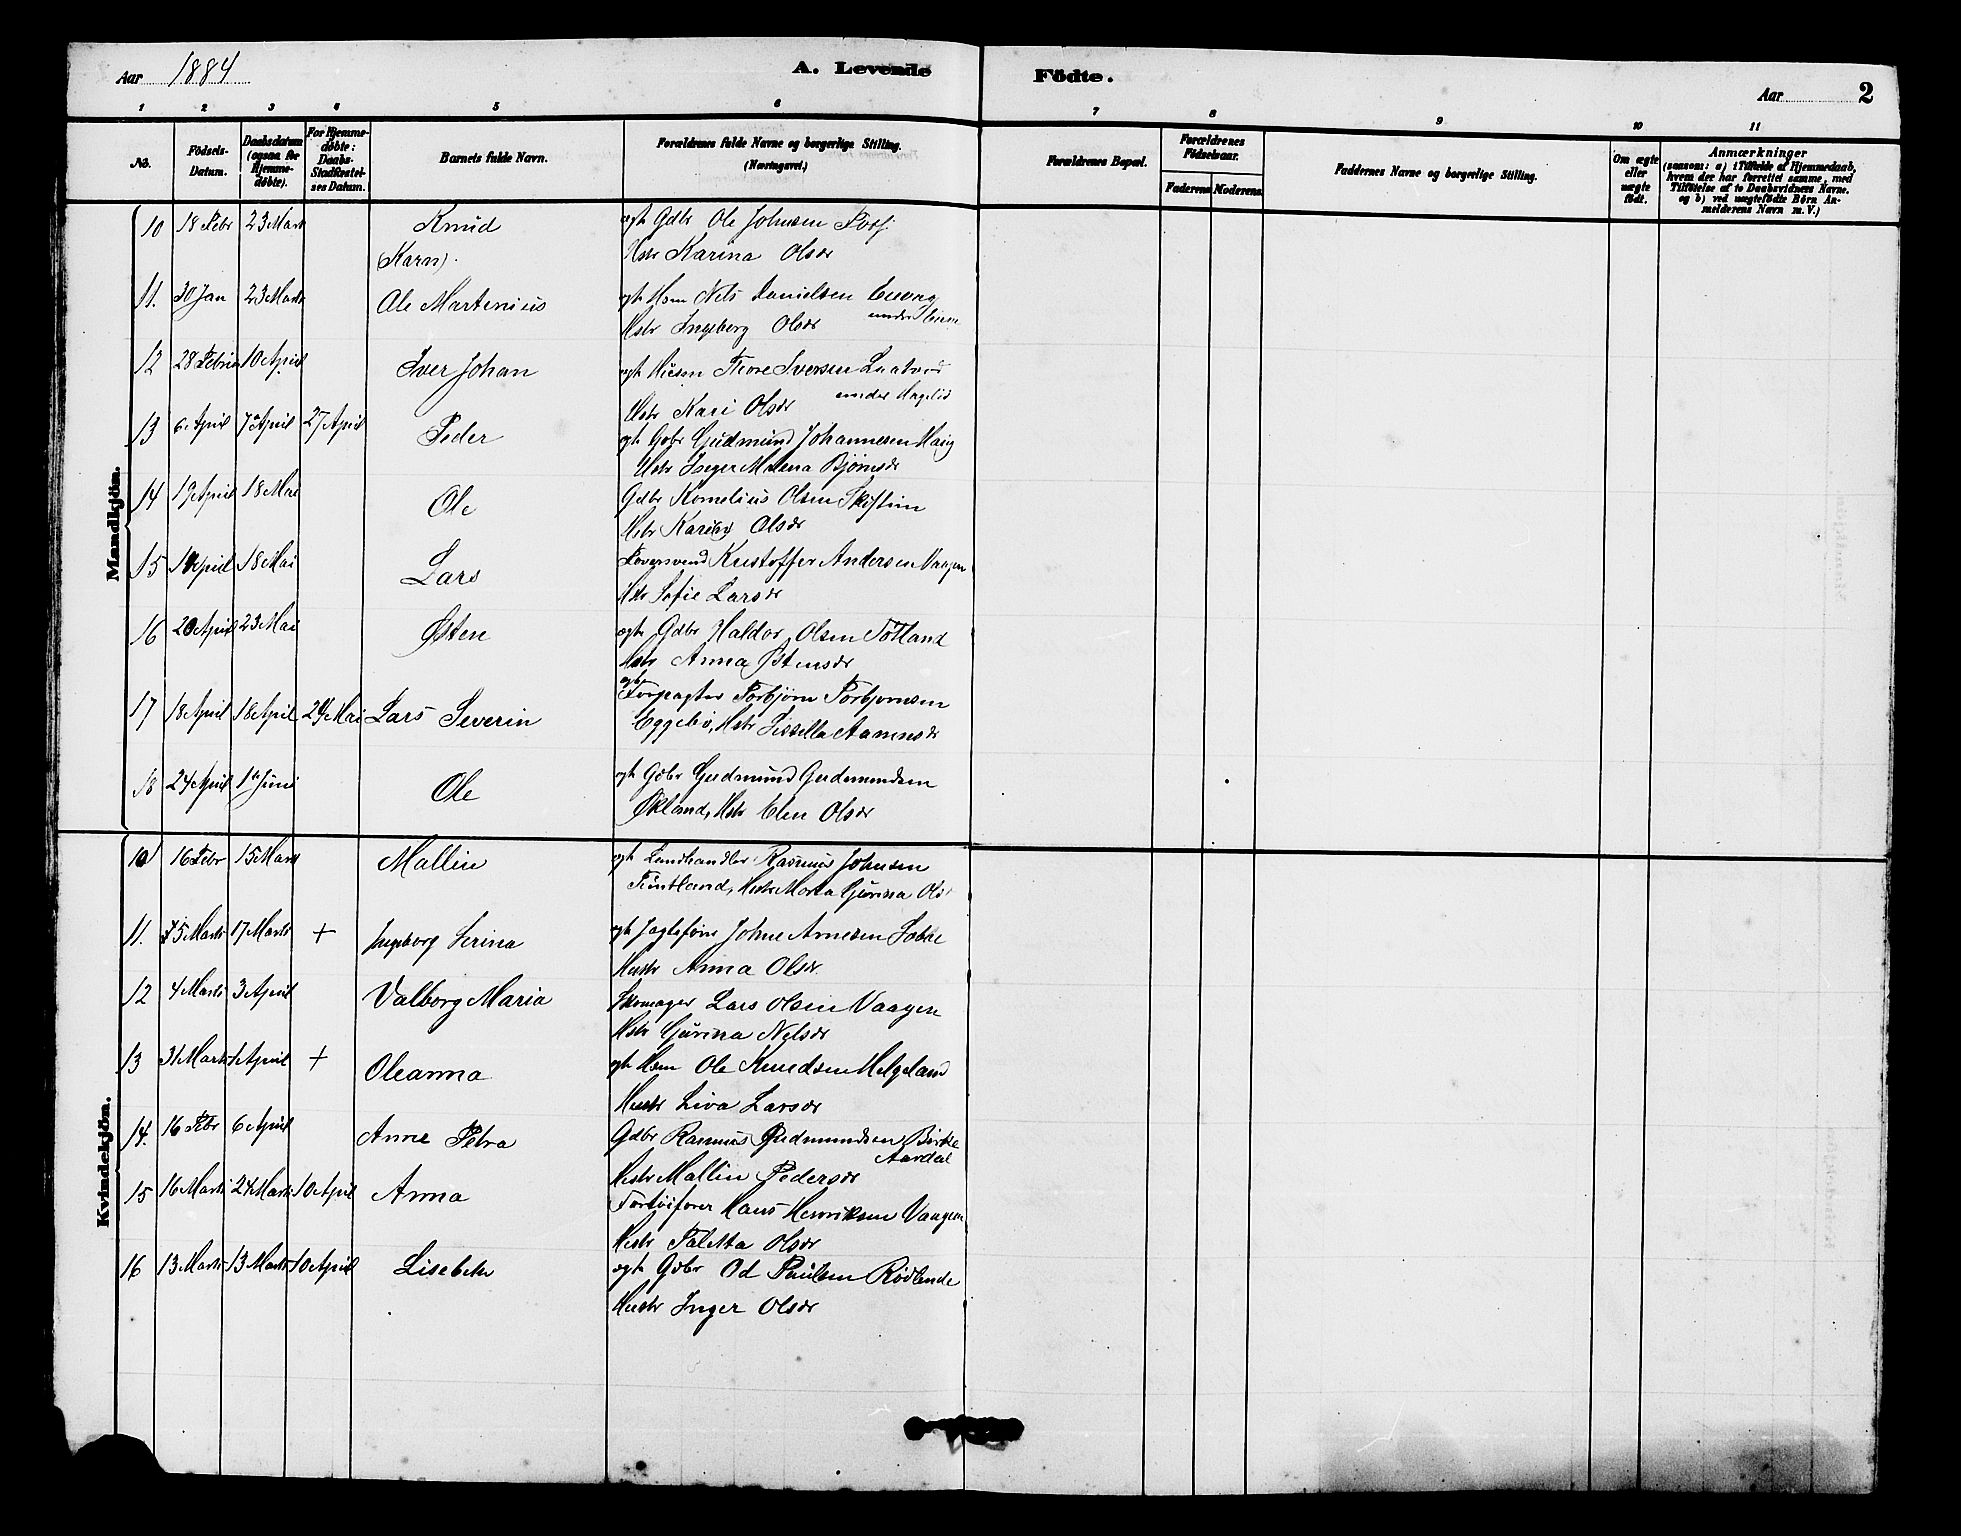 Aar 1884 A. Levende Födte. Aar 2
1 2 3 4 5 6 7 8 9 10 11
No. Födsels-Datum. Daabsdatum (ogsaa for Hjemme-døbte). For Hjemme-døbte: Daabs-Stadfæstel-ses Datum. Barnets fulde Navn. Forældrenes fulde Navne og borgerlige Stilling. (Næringsvei.) Forældrenes Bopæl. Forældrenes Födselsaar. Faderens Moderens Faddernes Navne og borgerlige Stilling. Om ægte eller uægte født. Anmærkninger (saasom: a) i Tilfælde af Hjemmedaab, hvem der har forrettet samme, med Tilføielse af to Daabsvidners Navne. og b) ved uægtefødte Börn Anmelderens Navn m. V.)
Mandkjön.
10 18 Febr 23 Marts Knud egt Gdbr Ole Johnsen
(Karn). Hstr Karina Olsdr
11. 30 Jan 23 Marts Ole Martenius egt Hsm Nels Danielsen
Hstr Ingeborg Olsdr under
12 28 Febru 10 April Iver Johan egt Tore Iversen
Hstr Kari Olsdr under Hagelid
13 6 April 7 April 27 April Peder egt Gdbr Gudmund Johannesen
Hstr Inger Malena Bjørnsdr
14 19 April 18 Mai Ole Gdbr Kornelius Olsen
Hstr Olsdr
15 April 18 Mai Lars Kristoffer Andersen Vaagen
Hstr Sofie Larsdr
16 20 April 23 Mai Østen egt Gdbr Haldor Olsen Totland
Hstr Anna Østensdr
17 18 April 18 April 24 Mai Lars Severin egt Forpagter Torbjørn Torbjornsen
Eggebø, Hstr Sissella
18 24 April 1 Juni Ole egt Gdbr Gudmund Gudmundsen
Økland, Hstr Elen Olsdr
Kvindekjön.
10 16 Febr 15 Marts Mallin egt Landhandler Rasmus Johnsen
Hstr Marta Gurina Ols
11. 15 Marts 17 Marts + Ingeborg Serina egt Jagtefører Johne Arnesen
Hustr Anna Olsdr.
12 4 Marts 3 April Valborg Maria Skomager Lars Olsen Vaagen
Hstr Gurina Nelsdr
13 31 Marts April + Oleanna egt Hsm Ole Knudsen Helgeland
Hustr Liva Larsdr
14. 16 Febr 6 April Anne Petra Gdbr Rasmus Gudmundsen Birke
Aardal
Hstr Mallin Pedersdr
15 16 Marts 24 Marts 10 April Anna Hans Henriksen Vaagen
Hstr Taletta Olsdr
16 13 Marts 13 Marts 10 April Lisebeth egt Gdbr Od Paulsen Rødlende
Hustr Inger Olsdr